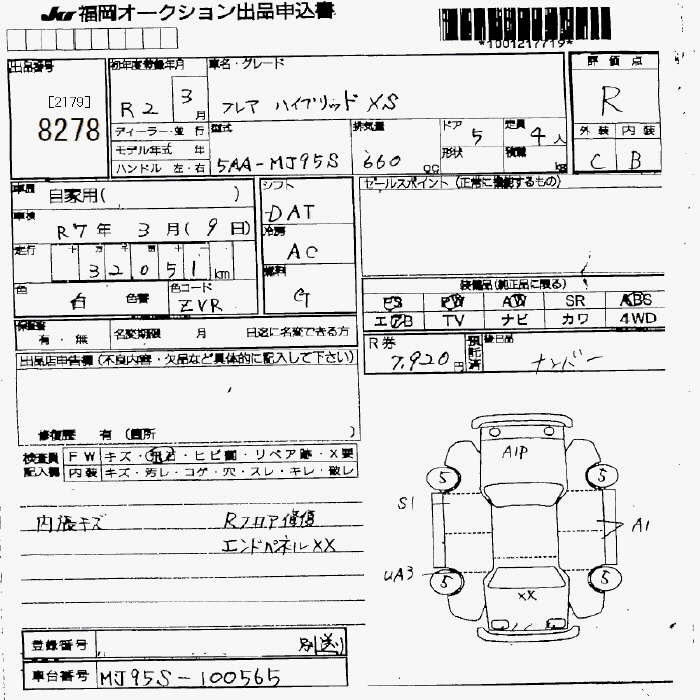 JU 福岡オークション出品申込書
*1001217719*
出品番号 初年度登録年月 車名・グレード 評価点
[2179] R2 3月 フレア ハイブリッド XS R
8278 ディーラー・並行 型式 排気量 ドア 5 定員 4人 外装 内装
モデル年式 年 5AA-MJ95S 660 cc 形状 積載 kg C B
ハンドル 左・右
車歴 自家用( ) シフト セールスポイント (正常に機能するもの)
車検 R7年 3月(9日) DAT
走行 十万千百十一 冷房
32051km AC
色 白 色替 色コード ZVR 燃料 G
装備品(純正品に限る)
PS PW AW SR ABS
エアB TV ナビ カワ 4WD
保証書 有・無 名変期限 月 日迄に名変できる方
R券 7,920円 預託済 後日品 ナンバー
出品店申告欄 (不良内容・欠品など具体的に記入して下さい)
修復歴 有 (箇所 )
検査員 FW キズ・飛石・ヒビ割・リペア跡・X要
記入欄 内装 キズ・汚レ・コゲ・穴・スレ・キレ・破レ
内張キズ Rフロア修復
エンドパネルXX
A1P
5 5
S1 A1
UA3 5 5
XX
登録番号 送り
車台番号 MJ95S-100565